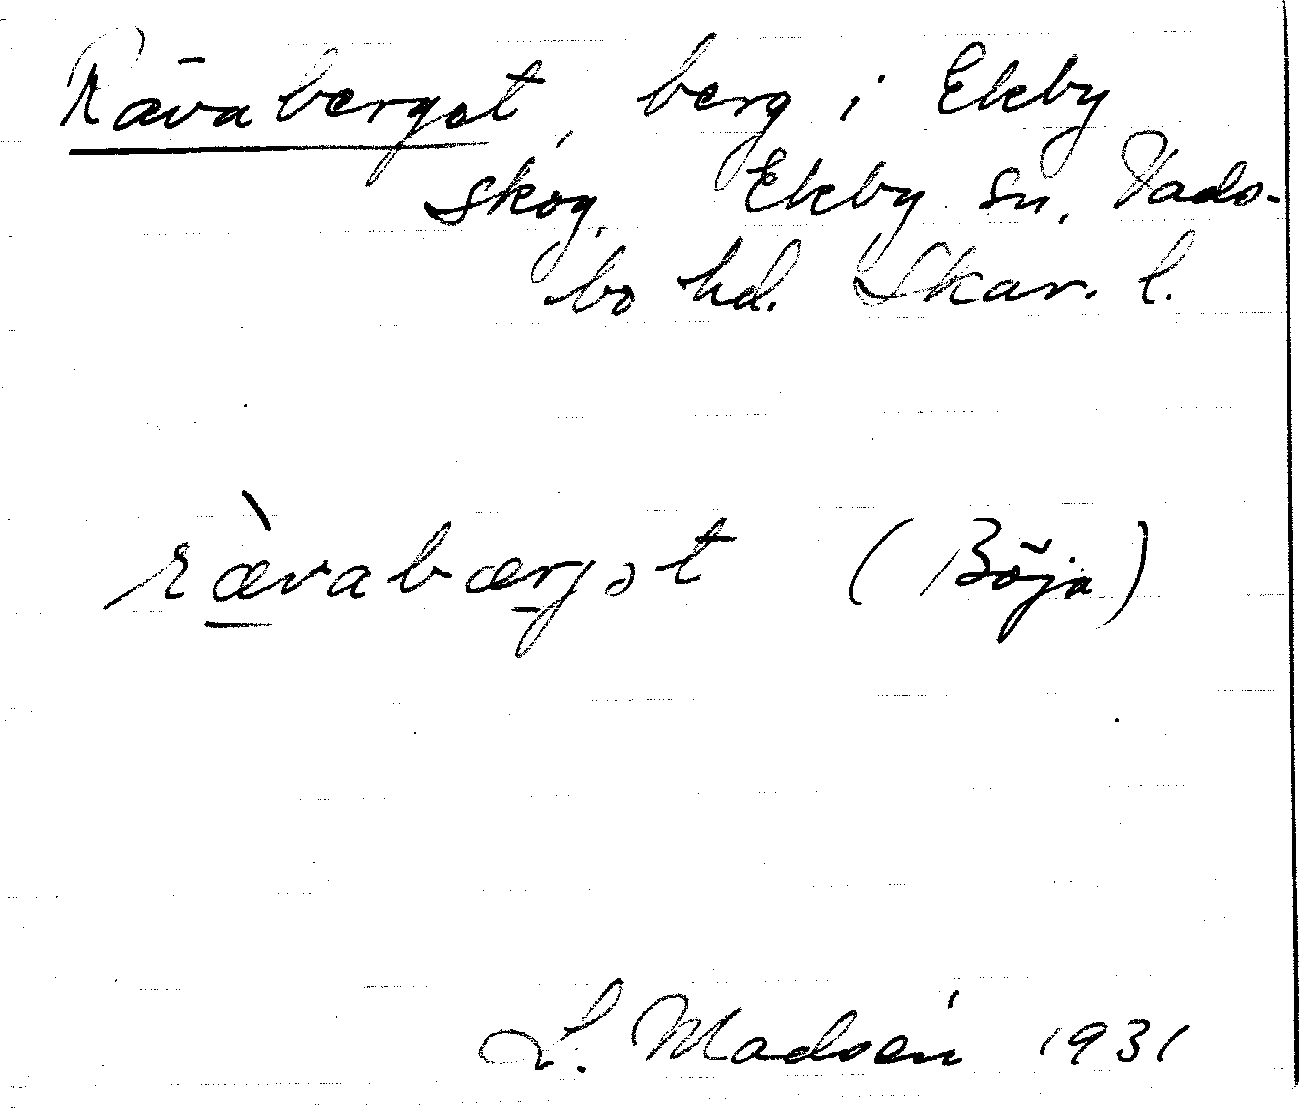 Rävaberget, berg i Ekby
skog, Ekby sn, Vads-
bo hd. Skar. l.
rævabærgət (Böja)
L. Madsén 1931